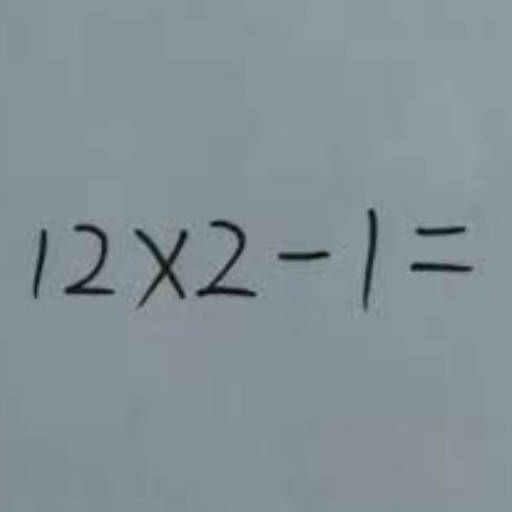 12×2-1=